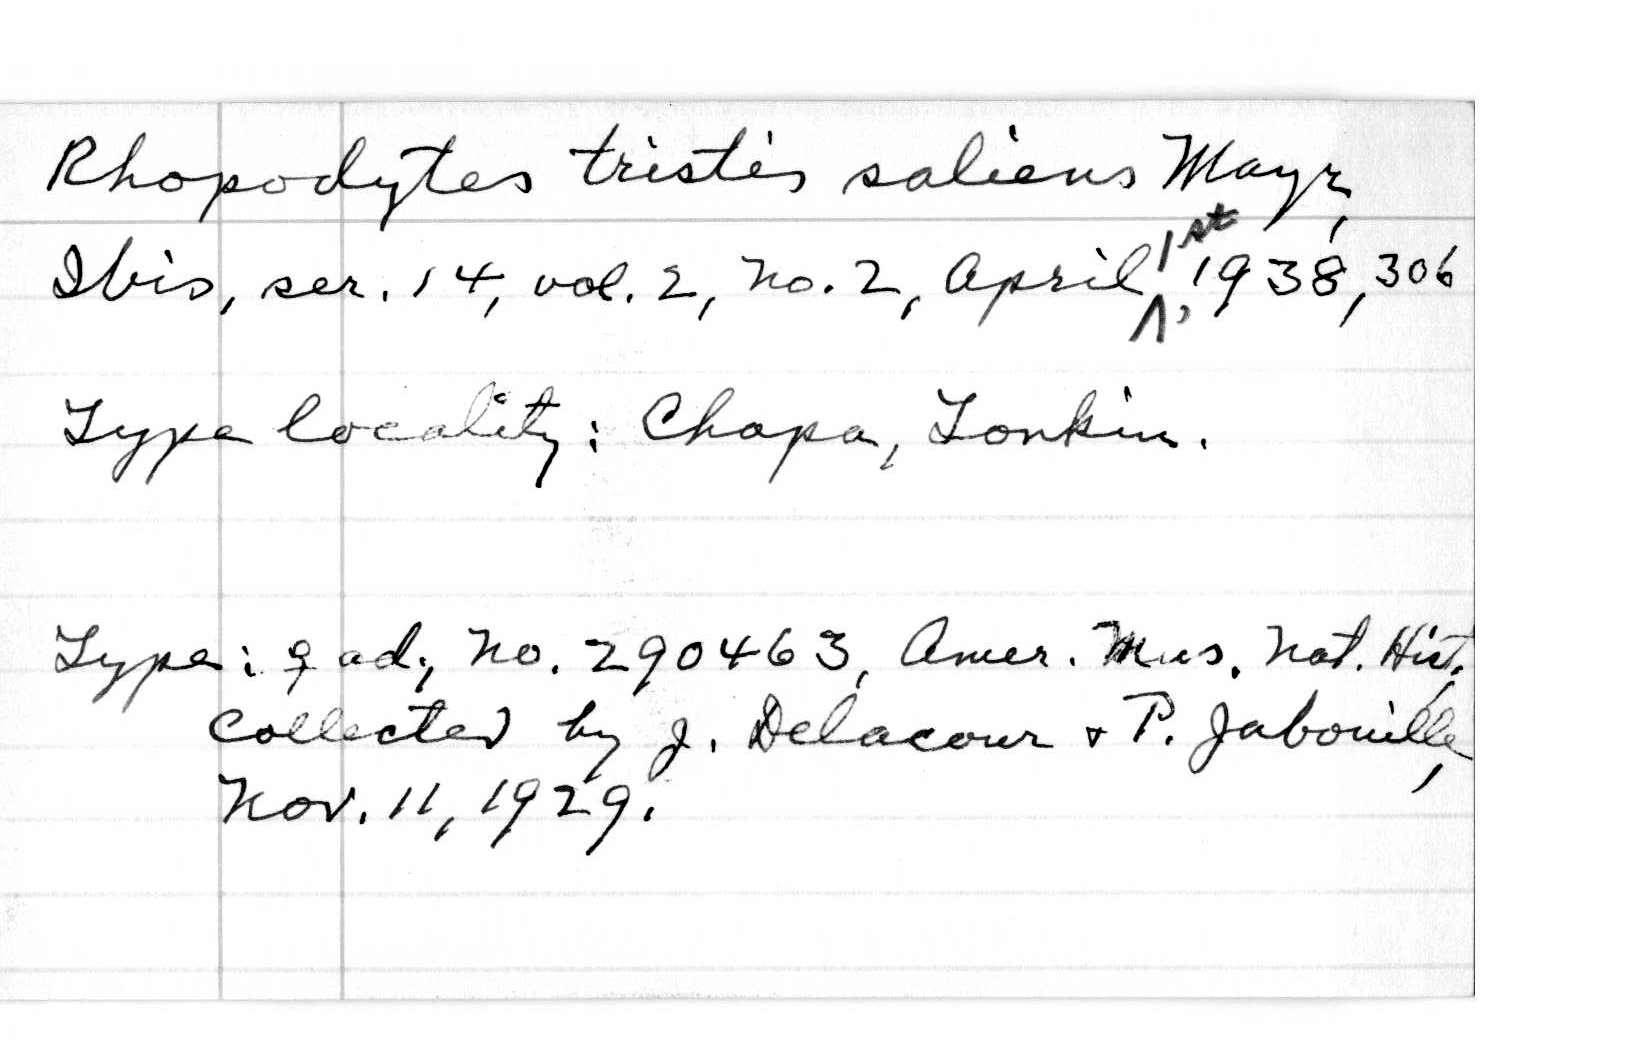 Rhopodytes tristis saliens Mayr,
Ibis, ser. 14, vol. 2, no. 2, April 1st, 1938, 306
Type locality: Chapa, Tonkin.
Type: ♀ ad., no. 290463, Amer. Mus. Nat. Hist.,
collected by J. Delacour & P. Jabouille,
Nov. 11, 1929.